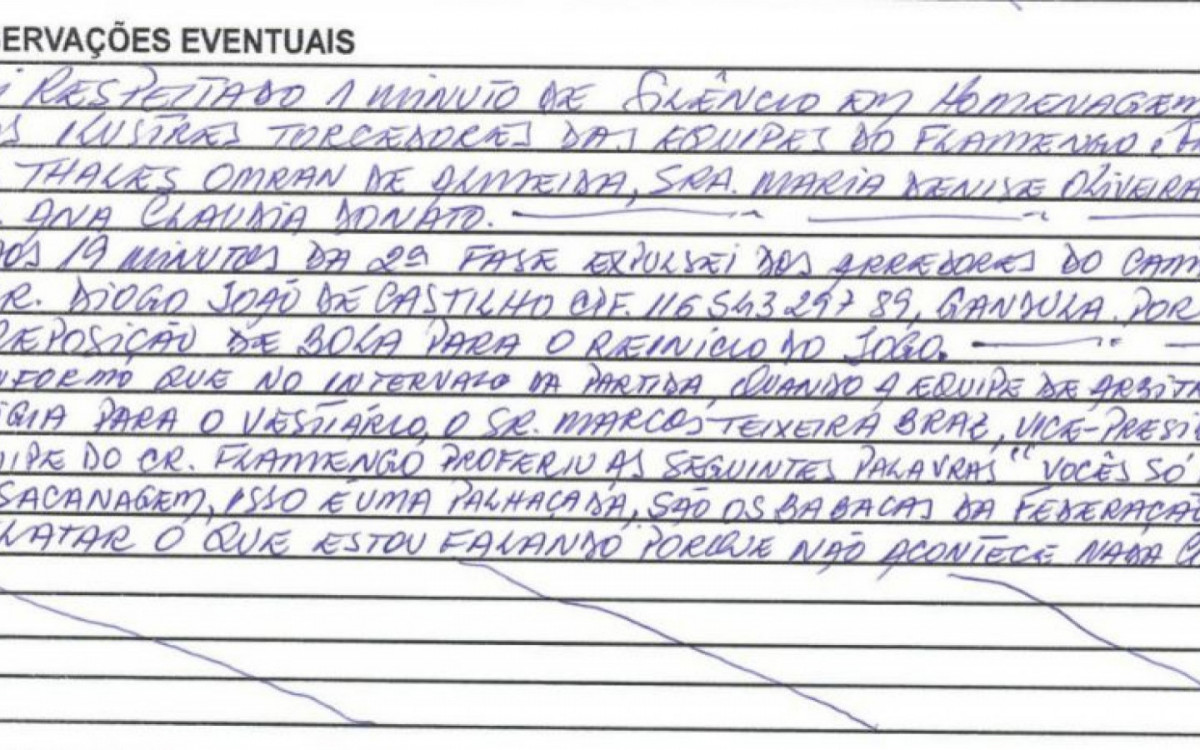 ERVAÇÕES EVENTUAIS
I RESPEITADO 1 MINUTO DE SILÊNCIO EM HOMENAGEM
OS ILUSTRES TORCEDORES DAS EQUIPES DO FLAMENGO E
THALES OMRAN DE ALMEIDA, SRA. MARIA DENISE OLIVEIRA
. ANA CLAUDIA DONATO.
AOS 19 MINUTOS DA 2ª FASE EXPULSEI DOS ARREDORES DO CAM
R. DIOGO JOÃO DE CASTILHO CPF. 116 543 297 89, GANDULA. POR
REPOSIÇÃO DE BOLA PARA O REINÍCIO DO JOGO.
NFORMO QUE NO INTERVALO DA PARTIDA, QUANDO A EQUIPE DE ARBIT
GIA PARA O VESTIÁRIO, O SR. MARCOS TEIXEIRA BRAZ, VICE-PRESI
IPE DO CR. FLAMENGO PROFERIU AS SEGUINTES PALAVRAS "VOCÊS SÓ
SACANAGEM, ISSO É UMA PALHAÇADA, SÃO OS BABACAS DA FEDERAÇÃO
LATAR O QUE ESTOU FALANDO PORQUE NÃO ACONTECE NADA